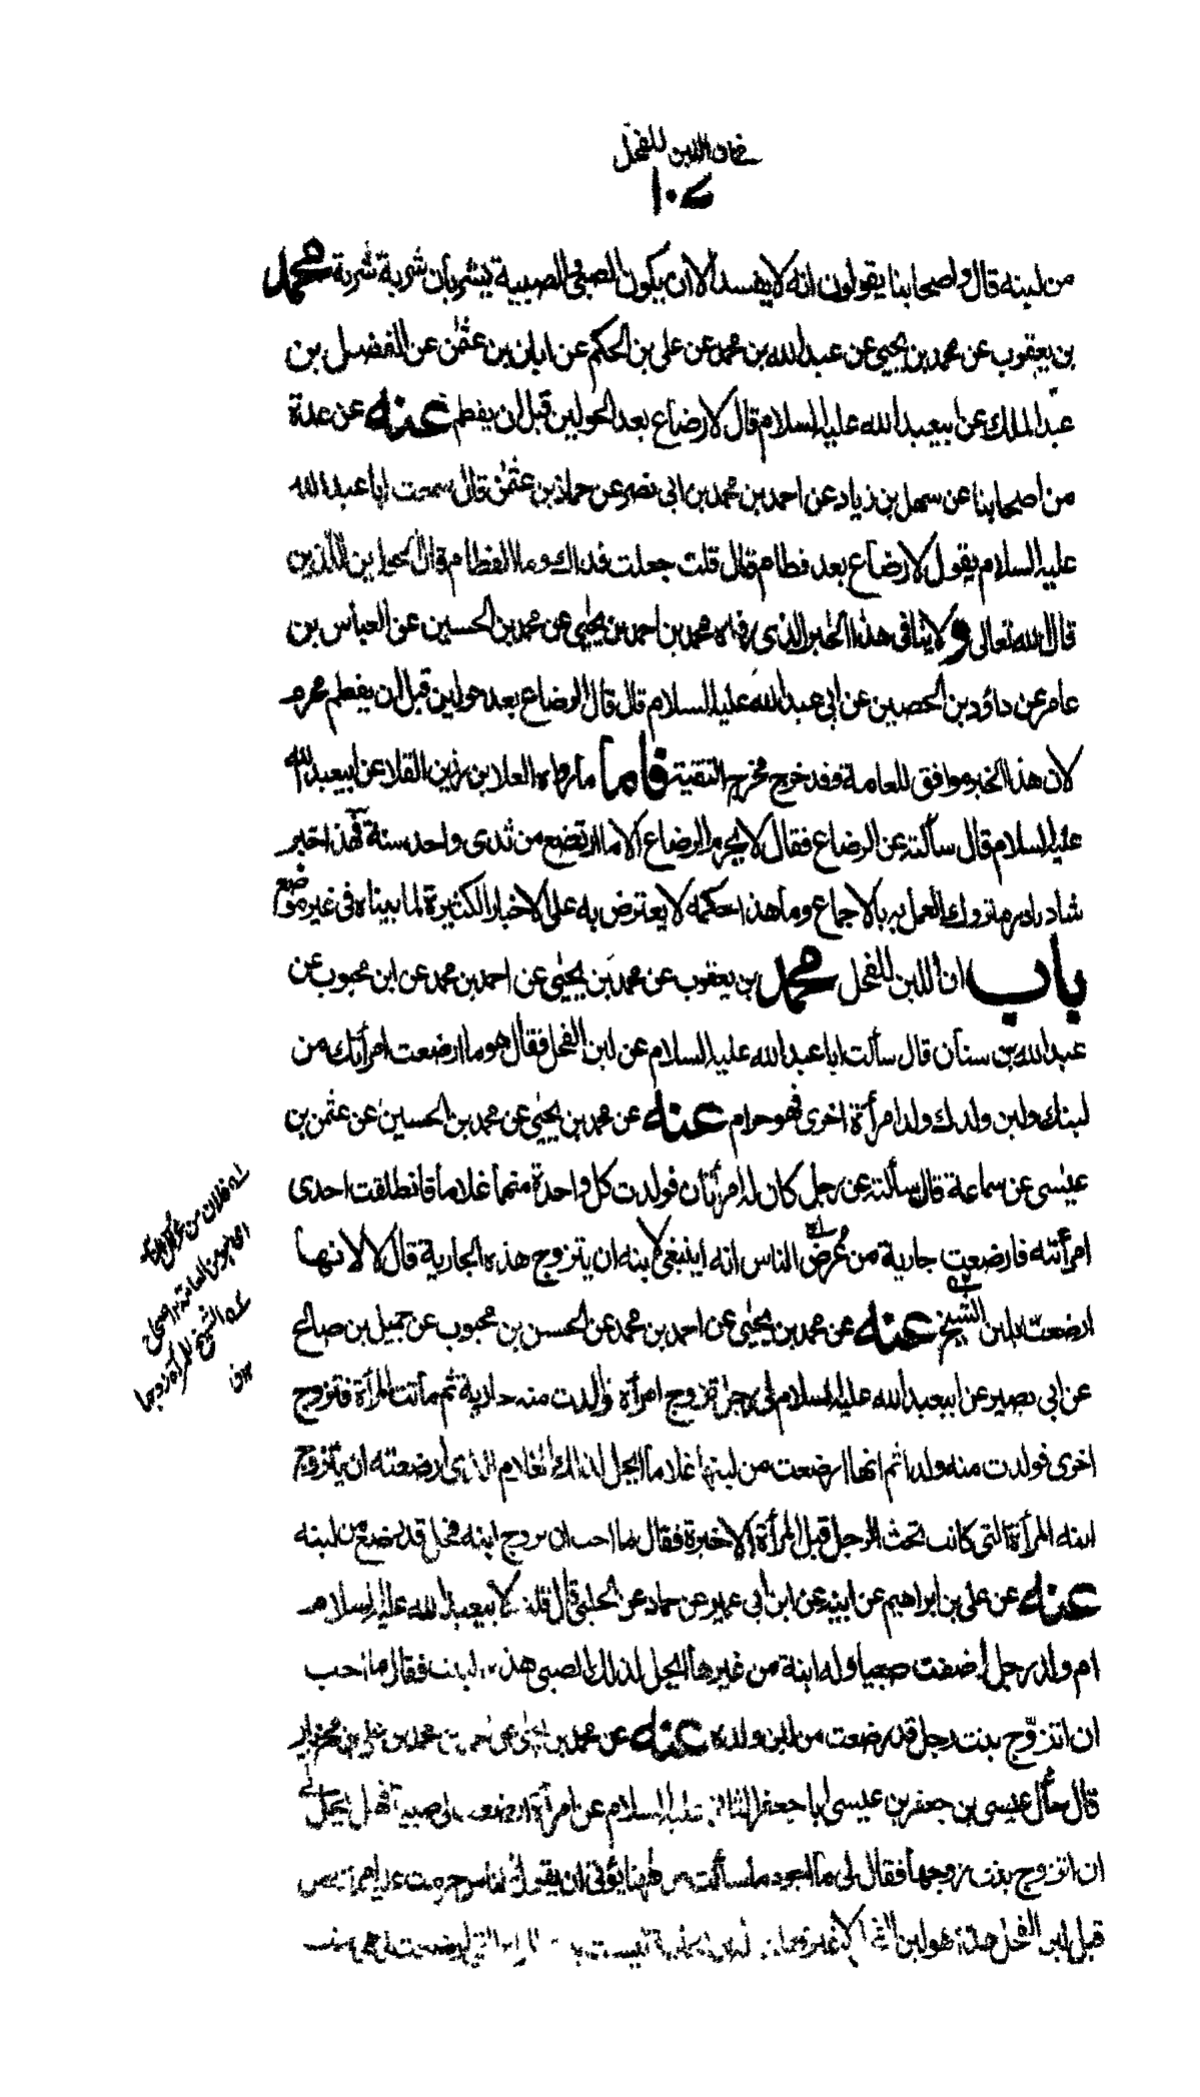 في ان اللبن للفحل
١٠٧
من لبنه قال واصحابنا يقولون انه لا يفسد الا ان يكون الصبي والصبية يشربان شربة شربة محمد
بن يعقوب عن محمد بن يحيى عن عبد الله بن محمد عن علي بن الحكم عن ابان بن عثمن عن الفضل بن
عبد الملك عن ابيعبد الله عليه السلام قال لا رضاع بعد الحولين قبل ان يفطم عنه عن عدة
من اصحابنا عن سهل بن زياد عن احمد بن محمد بن ابي نصر عن حماد بن عثمن قال سمعت ابا عبد الله
عليه السلام يقول لا رضاع بعد فطام قال قلت جعلت فداك وما الفطام قال الحولين اللذين
قال الله تعالى ولا ينافي هذا الخبر الذي رواه محمد بن احمد بن يحيى عن محمد بن الحسين عن العباس بن
عامر عن داؤد بن الحصين عن ابي عبد الله عليه السلام قال قال الرضاع بعد حولين قبل ان يفطم محرم
لان هذا الخبر موافق للعامة فقد خرج مخرج التقية فاما ما رواه العلا بن رزين القلا عن ابيعبد الله
عليه السلام قال سألته عن الرضاع فقال لا يحرم الرضاع الا ما ارتضع من ثدى واحد سنة فهذا خبر
شاذ نادر متروك العمل به بالاجماع وما هذا حكمه لا يعترض به على الاخبار الكثيرة لما بيناه في غير موضع
باب ان اللبن للفحل محمد بن يعقوب عن محمد بن يحيى عن احمد بن محمد عن ابن محبوب عن
عبد الله بن سنان قال سألت ابا عبد الله عليه السلام عن لبن الفحل فقال هو ما ارضعت امرأتك من
لبنك ولبن ولدك ولد امرأة اخرى فهو حرام عنه عن محمد بن يحيى عن محمد بن الحسين عن عثمن بن
عيسى عن سماعة قال سألته عن رجل كان له امرأتان فولدت كل واحدة منهما غلاما فانطلقت احدى
امرأتيه فارضعت جارية من عُرض الناس انه اينبغي لابنه ان يتزوج هذه الجارية قال لا لانها
ارضعت بلبن الشيخ عنه عن محمد بن يحيى عن احمد بن محمد عن الحسن بن محبوب عن جميل بن صالح
عن ابي بصير عن ابيعبد الله عليه السلام في رجل تزوج امرأة فولدت منه جارية ثم ماتت المرأة فتزوج
اخرى فولدت منه ولدا ثم انها ارضعت من لبنها غلاما ايحل لذلك الغلام الذي ارضعته ان يتزوج
ابنة المرأة التي كانت تحت الرجل قبل المرأة الاخيرة فقال ما احب ان يتزوج ابنة فحل قد رضع من لبنه
عنه عن علي بن ابراهيم عن ابيه عن ابن ابي عمير عن حماد عن الحلبي قال قلت لابيعبد الله عليه السلام
ام ولد رجل ارضعت صبيا وله ابنة من غيرها ايحل لذلك الصبي هذه الابنة فقال ما احب
ان اتزوج بنت رجل قد رضعت من لبن ولده عنه عن محمد بن يحيى عن احمد بن محمد عن علي بن مهزيار
قال سأل عيسى بن جعفر بن عيسى ابا جعفر الثاني عليه السلام عن امرأة ارضعت لي صبيا فهل يحل لي
ان اتزوج بنت زوجها فقال لي ما اجود ما سألت من ههنا يؤتى ان يقول الناس حرمت عليه امرأته من
قبل لبن الفحل هذا هو لبن الفحل لا غيره